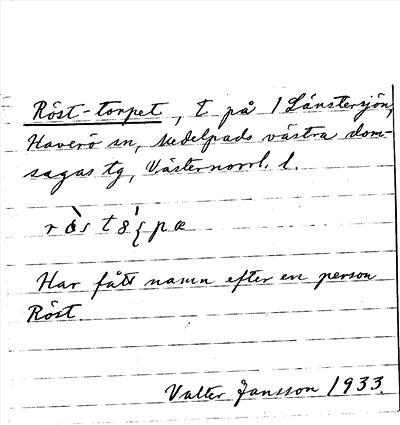 Röst-torpet, t på 1 Länstersjön,
Haverö sn, Medelpads västra dom-
sagas tg, Västernorrl. l.
Har fått namn efter en person
Röst.
Valter Jansson 1933.